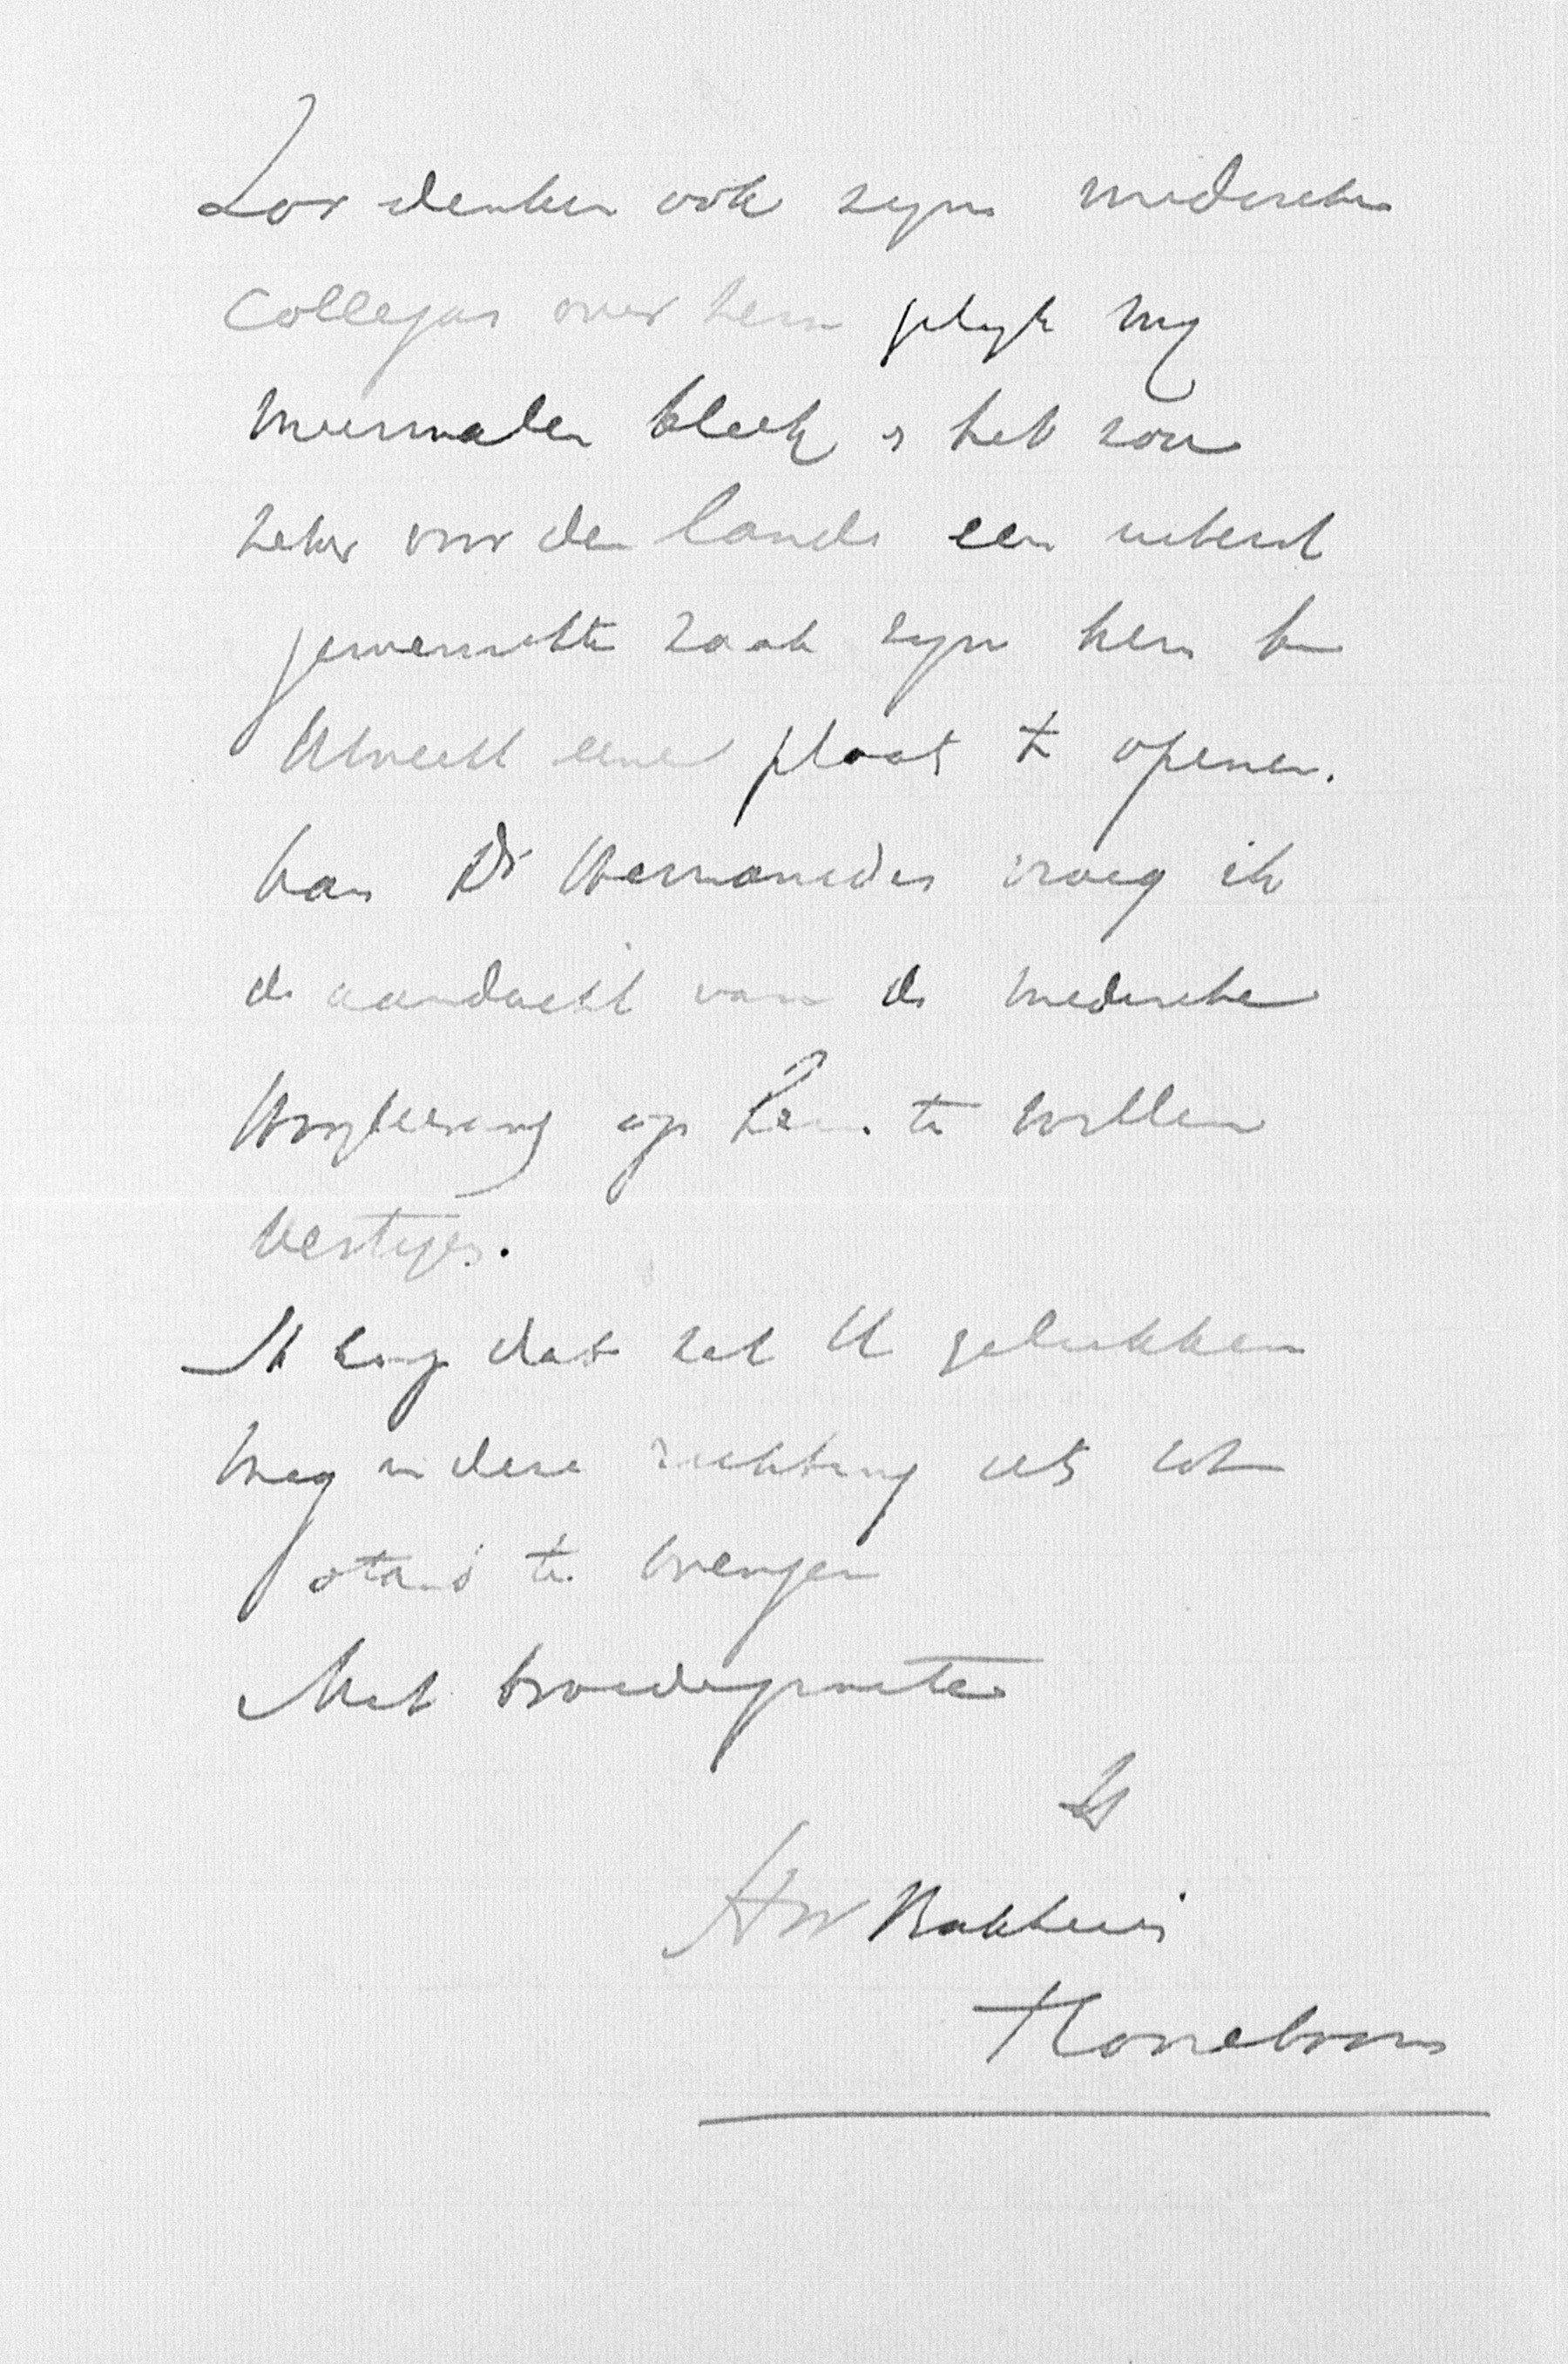 Zoo denken ook zijn medische
Collegas over hem gelijk mij
meermalen bleek & het zou
zeker voor den lande een uiterst
gewenschte zaak zijn hem te
Utrecht eene plaats te openen.
Van Dr vroeg ik
de aandacht van de medische
op hem te willen
vestigen.
Ik hoop dat het U gelukken
mag in deze richting iets tot
stand te brengen
Met broedergroeten
HW Bakhuis
Rooseboom